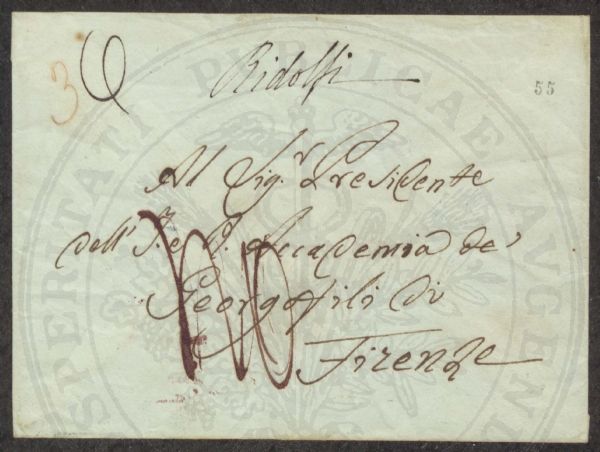 3
6
Ridolfi
55
Al Sig.r Presidente
dell' I. e R. Accademia de'
Georgofili di
Firenze
PROSPERITATI PUBLICAE AUGENDAE